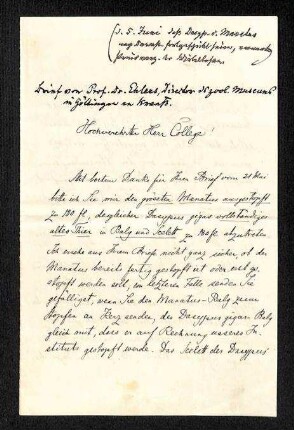 (d. 5. Juni das Dasyp. u. Manatus
Brief von Prof. Dr. Ehlers, Director d. zool. Museums
in Göttingen an Krauß.
Hochverehrter Herr College!
Mit bestem Danke für Ihren Brief vom 21 Mai
bitte ich Sie mir den grössten Manatus ausgestopft
zu 180 fl., desgleichen Dasypus gigas vollständiges
altes Thier in Balg und Scelett zu 140 fl. abzutreten.
Ich ersehe aus Ihrem Briefe nicht ganz sicher, ob der
Manatus bereits fertig gestopft ist oder erst ge-
stopft werden soll, im letzteren Falle senden Sie
gefälligst, wenn Sie den Manatus-Balg zum
stopfen an Herz senden, das Dasypus gigas Balg
gleich mit, dass er auf Rechnung unseres In-
stituts gestopft werde. Das Scelett des Dasypus